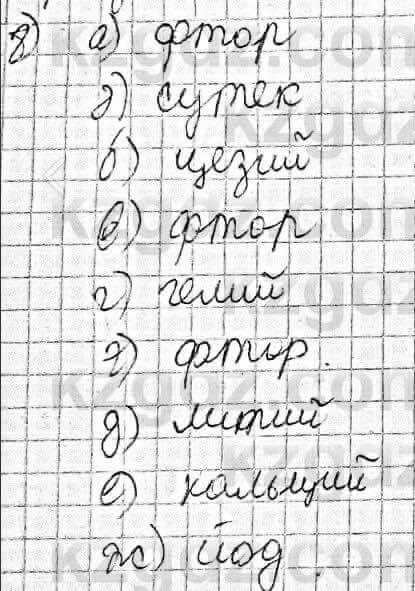 8) а) фтор
ә) сутек
б) цезий
в) фтор
г) гелий
ғ) фтор.
д) литий
е) кальций
ж) йод